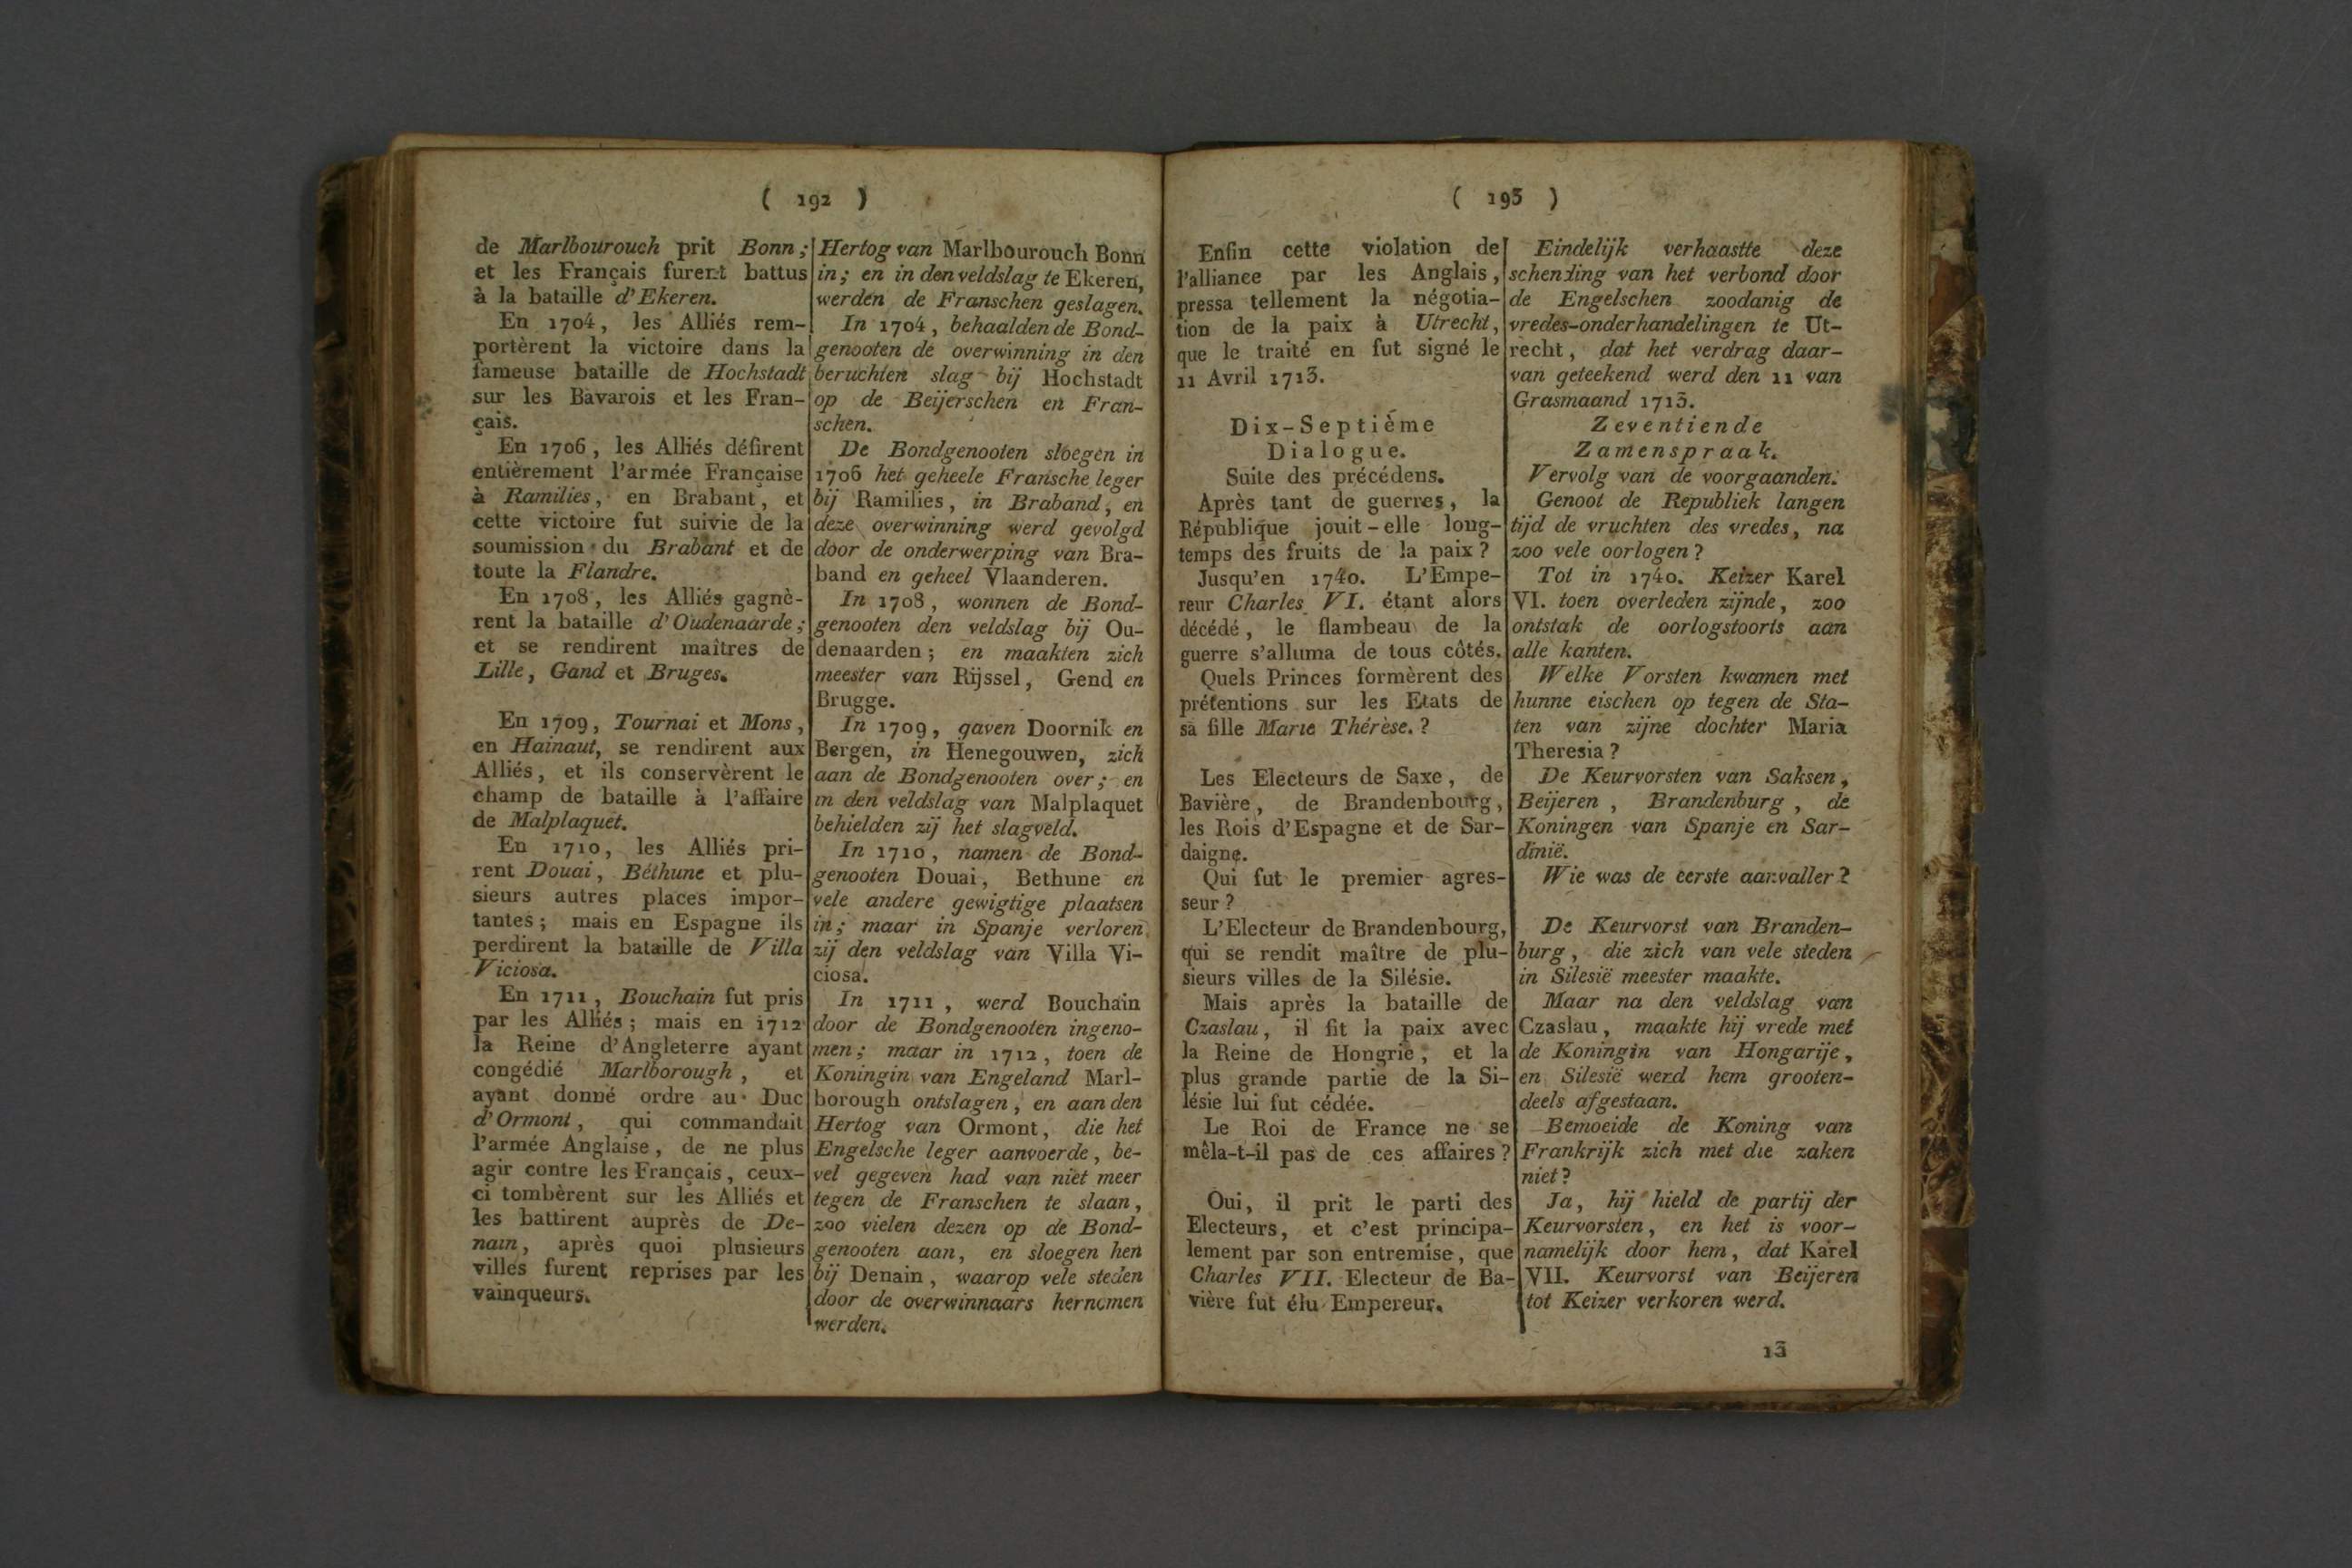 ( 192 )
de Marlbourouch prit Bonn;
et les Français furent battus
à la bataille d'Ekeren.
En 1704, les Alliés rem-
portèrent la victoire dans la
fameuse bataille de Hochstadt
sur les Bavarois et les Fran-
çais.
En 1706, les Alliés défirent
entièrement l'armée Française
à Ramilies, en Brabant, et
cette victoire fut suivie de la
soumission du Brabant et de
toute la Flandre.
En 1708, les Alliés gagnè-
rent la bataille d'Oudenaarde;
et se rendirent maîtres de
Lille, Gand et Bruges.
En 1709, Tournai et Mons,
en Hainaut, se rendirent aux
Alliés, et ils conservèrent le
champ de bataille à l'affaire
de Malplaquet.
En 1710, les Alliés pri-
rent Douai, Béthune et plu-
sieurs autres places impor-
tantes; mais en Espagne ils
perdirent la bataille de Villa
Viciosa.
En 1711, Bouchain fut pris
par les Alliés; mais en 1712
la Reine d'Angleterre ayant
congédié Marlborough, et
ayant donné ordre au Duc
d'Ormont, qui commandait
l'armée Anglaise, de ne plus
agir contre les Français, ceux-
ci tombèrent sur les Alliés et
les battirent auprès de De-
nain, après quoi plusieurs
villes furent reprises par les
vainqueurs.
Hertog van Marlbourouch Bonn
in; en in den veldslag te Ekeren,
werden de Franschen geslagen.
In 1704, behaalden de Bond-
genooten de overwinning in den
beruchten slag bij Hochstadt
op de Beijerschen en Fran-
schen.
De Bondgenooten sloegen in
1706 het geheele Fransche leger
bij Ramilies, in Braband, en
deze overwinning werd gevolgd
door de onderwerping van Bra-
band en geheel Vlaanderen.
In 1708, wonnen de Bond-
genooten den veldslag bij Ou-
denaarden; en maakten zich
meester van Rijssel, Gend en
Brugge.
In 1709, gaven Doornik en
Bergen, in Henegouwen, zich
aan de Bondgenooten over; en
in den veldslag van Malplaquet
behielden zij het slagveld.
In 1710, namen de Bond-
genooten Douai, Bethune en
vele andere gewigtige plaatsen
in; maar in Spanje verloren
zij den veldslag van Villa Vi-
ciosa.
In 1711, werd Bouchain
door de Bondgenooten ingeno-
men; maar in 1712, toen de
Koningin van Engeland Marl-
borough ontslagen, en aan den
Hertog van Ormont, die het
Engelsche leger aanvoerde, be-
vel gegeven had van niet meer
tegen de Franschen te slaan,
zoo vielen dezen op de Bond-
genooten aan, en sloegen hen
bij Denain, waarop vele steden
door de overwinnaars hernomen
werden.
( 193 )
Enfin cette violation de
l'alliance par les Anglais,
pressa tellement la négotia-
tion de la paix à Utrecht,
que le traité en fut signé le
11 Avril 1713.
Dix-Septiéme
Dialogue.
Suite des précédens.
Après tant de guerres, la
République jouit-elle long-
temps des fruits de la paix?
Jusqu'en 1740. L'Empe-
reur Charles VI. étant alors
décédé, le flambeau de la
guerre s'alluma de tous côtés.
Quels Princes formèrent des
prétentions sur les Etats de
sa fille Marie Thérèse.?
Les Electeurs de Saxe, de
Bavière, de Brandenbourg,
les Rois d'Espagne et de Sar-
daigne.
Qui fut le premier agres-
seur?
L'Electeur de Brandenbourg,
qui se rendit maître de plu-
sieurs villes de la Silésie.
Mais après la bataille de
Czaslau, il fit la paix avec
la Reine de Hongrie, et la
plus grande partie de la Si-
lésie lui fut cédée.
Le Roi de France ne se
mêla-t-il pas de ces affaires?
Oui, il prit le parti des
Electeurs, et c'est principa-
lement par son entremise, que
Charles VII. Electeur de Ba-
vière fut élu Empereur.
Eindelijk verhaastte deze
schending van het verbond door
de Engelschen zoodanig de
vredes-onderhandelingen te Ut-
recht, dat het verdrag daar-
van geteekend werd den 11 van
Grasmaand 1713.
Zeventiende
Zamenspraak.
Vervolg van de voorgaanden.
Genoot de Republiek langen
tijd de vruchten des vredes, na
zoo vele oorlogen?
Tot in 1740. Keizer Karel
VI. toen overleden zijnde, zoo
ontstak de oorlogstoorts aan
alle kanten.
Welke Vorsten kwamen met
hunne eischen op tegen de Sta-
ten van zijne dochter Maria
Theresia?
De Keurvorsten van Saksen,
Beijeren, Brandenburg, de
Koningen van Spanje en Sar-
dinië.
Wie was de eerste aanvaller?
De Keurvorst van Branden-
burg, die zich van vele steden
in Silesië meester maakte.
Maar na den veldslag van
Czaslau, maakte hij vrede met
de Koningin van Hongarije,
en Silesië werd hem grooten-
deels afgestaan.
Bemoeide de Koning van
Frankrijk zich met die zaken
niet?
Ja, hij hield de partij der
Keurvorsten, en het is voor-
namelijk door hem, dat Karel
VII. Keurvorst van Beijeren
tot Keizer verkoren werd.
13